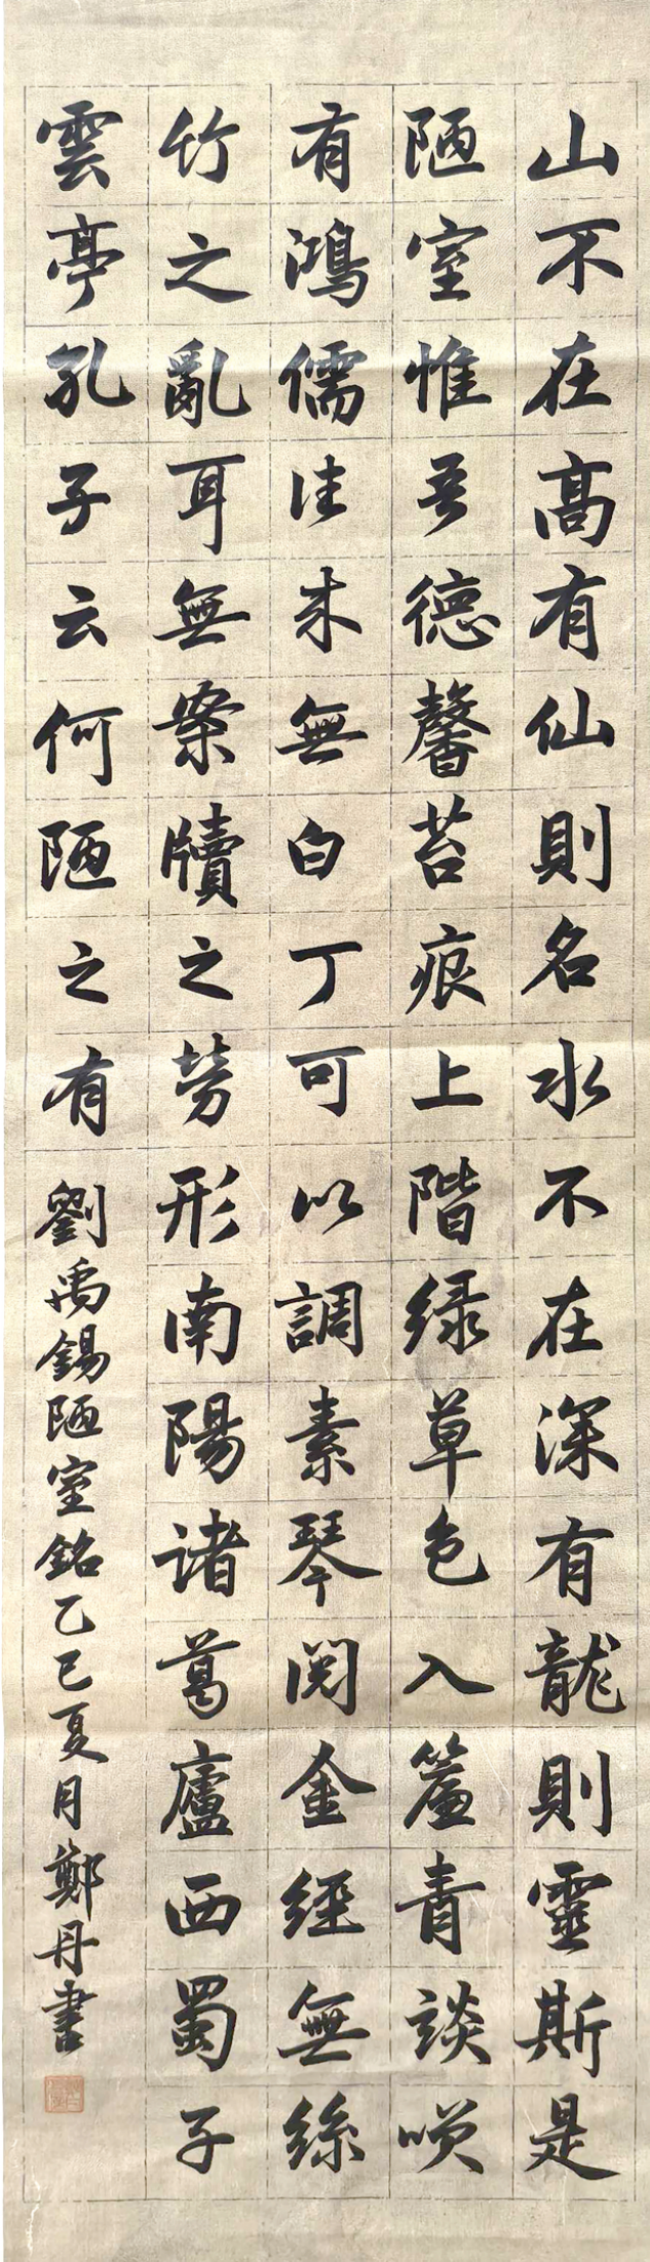 山不在高有仙則名水不在深有龍則靈斯是
陋室惟吾德馨苔痕上階緑草色入簾青談唉
有鴻儒往来無白丁可以調素琴閲金經無絲
竹之亂耳無案牘之勞形南陽諸葛廬西蜀子
雲亭孔子云何陋之有 劉禹錫陋室銘乙巳夏月鄭丹書